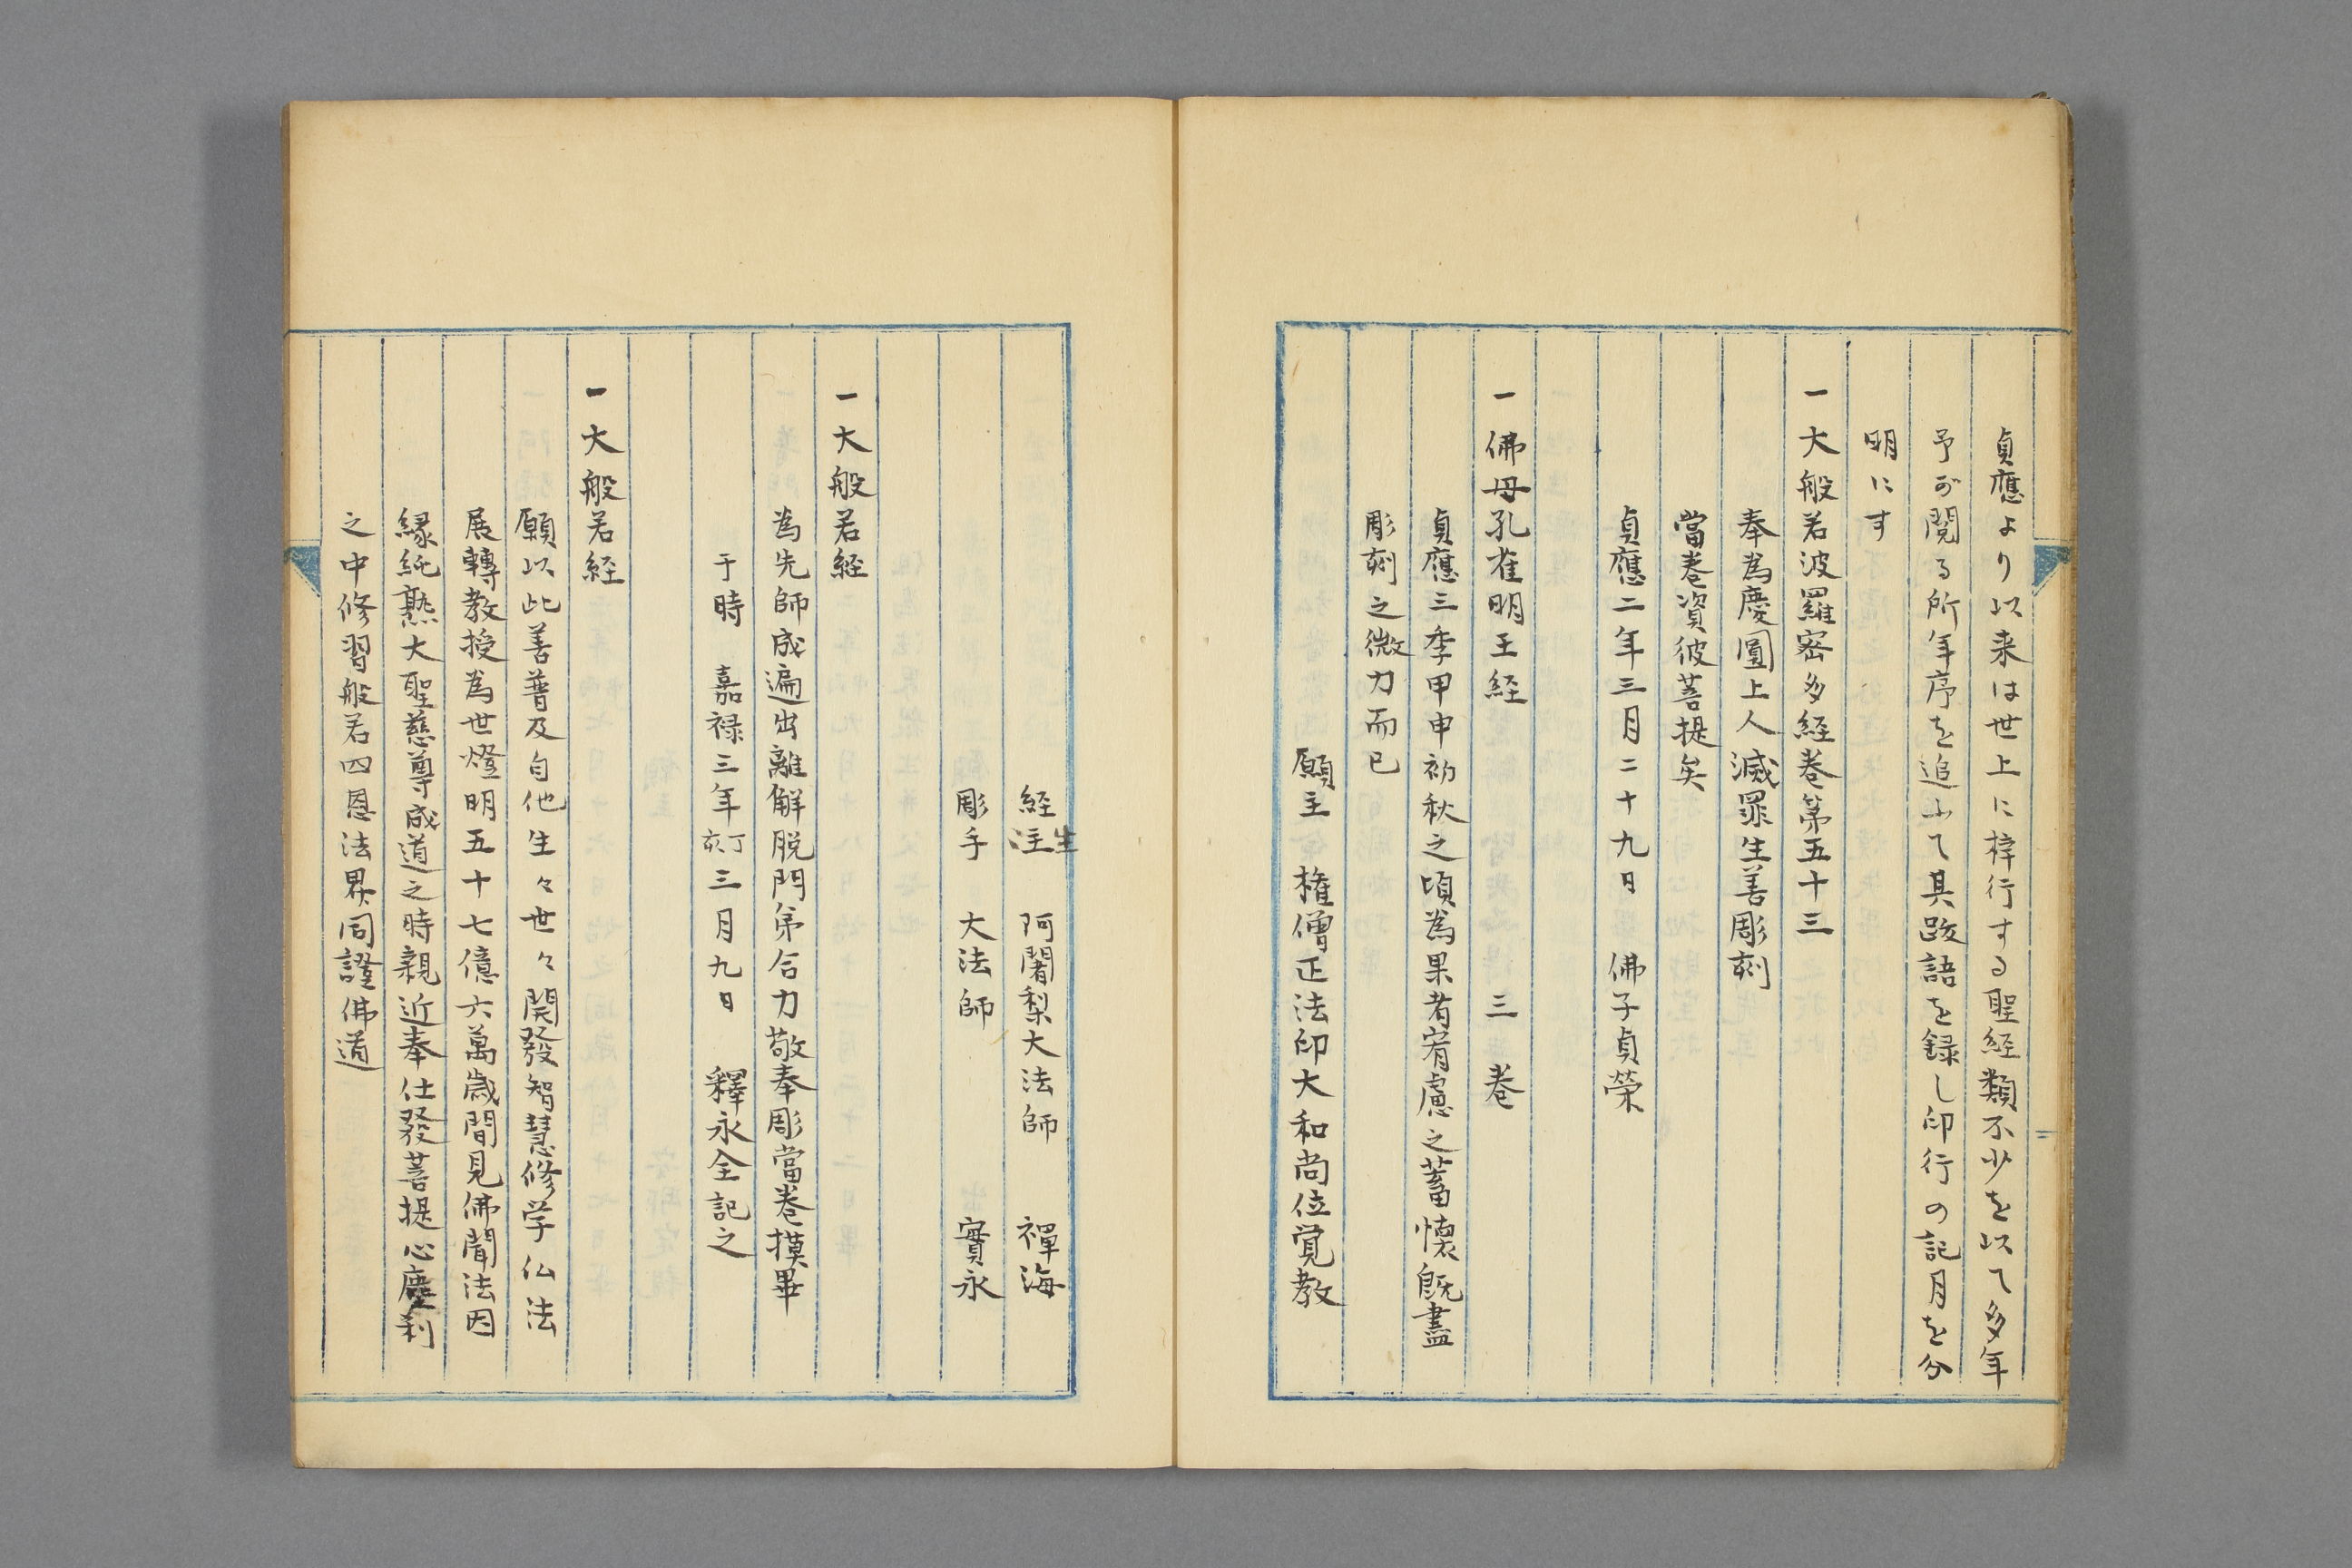 貞應より以来は世上に梓行する聖経類不少を以て多年
予が閲る所年序を追ふて其跋語を録し印行の記月を分
明にす
一大般若波羅密多経巻第五十三
奉為慶圓上人滅罪生善彫刻
當巻資彼菩提矣
貞應二年三月二十九日 佛子貞榮
一佛母孔雀明王経 三巻
貞應三季甲申初秋之頃為果者宥慮之蓄懐既盡
彫刻之微力而已
願主 権僧正法印大和尚位覚教
経注生 阿闍梨大法師 禪海
彫手 大法師 實永
一大般若経
為先師成遍出離解脱門弟合力敬奉彫當巻摸畢
于時 嘉禄三年丁亥三月九日 釋永全記之
一大般若経
願以此善普及自他生々世々開發智慧修学仏法
展轉教授為世燈明五十七億六萬歳間見佛聞法因
縁純熟大聖慈尊成道之時親近奉仕發菩提心塵刹
之中修習般若四恩法界同證佛道